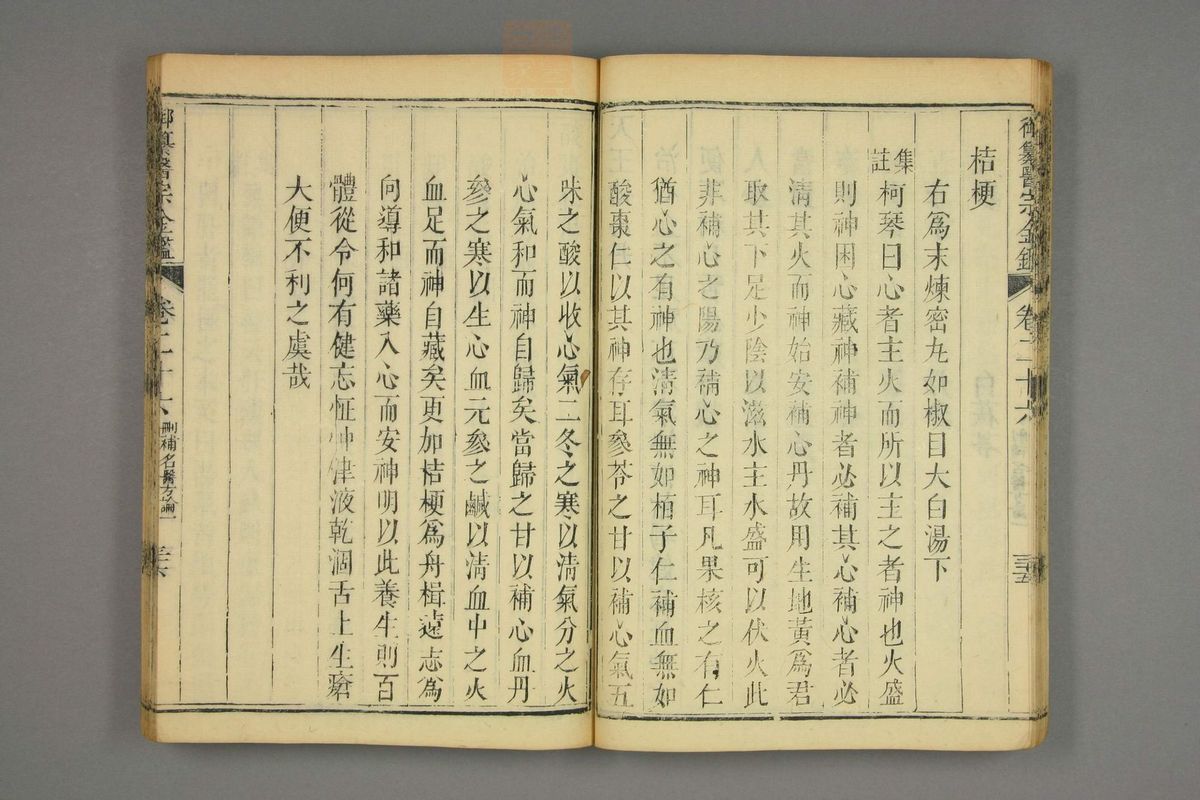 御纂醫宗金鑑 卷二十六 三五
桔梗
右爲末煉密丸如椒目大白湯下
集註柯琴曰心者主火而所以主之者神也火盛
則神困心藏神補神者必補其心補心者必
清其火而神始安補心丹故用生地黃爲君
取其下足少陰以滋水主水盛可以伏火此
非補心之陽乃補心之神耳凡果核之有仁
猶心之有神也清氣無如栢子仁補血無如
酸棗仁以其神存耳參苓之甘以補心氣五
味之酸以收心氣二冬之寒以清氣分之火
心氣和而神自歸矣當歸之甘以補心血丹
參之寒以生心血元參之鹹以清血中之火
血足而神自藏矣更加桔梗爲舟楫遠志爲
向導和諸藥入心而安神明以此養生則百
體從令何有健忘怔忡津液乾涸舌上生瘡
大便不利之虞哉
御纂醫宗金鑑 卷二十六 刪補名醫方論一 三六